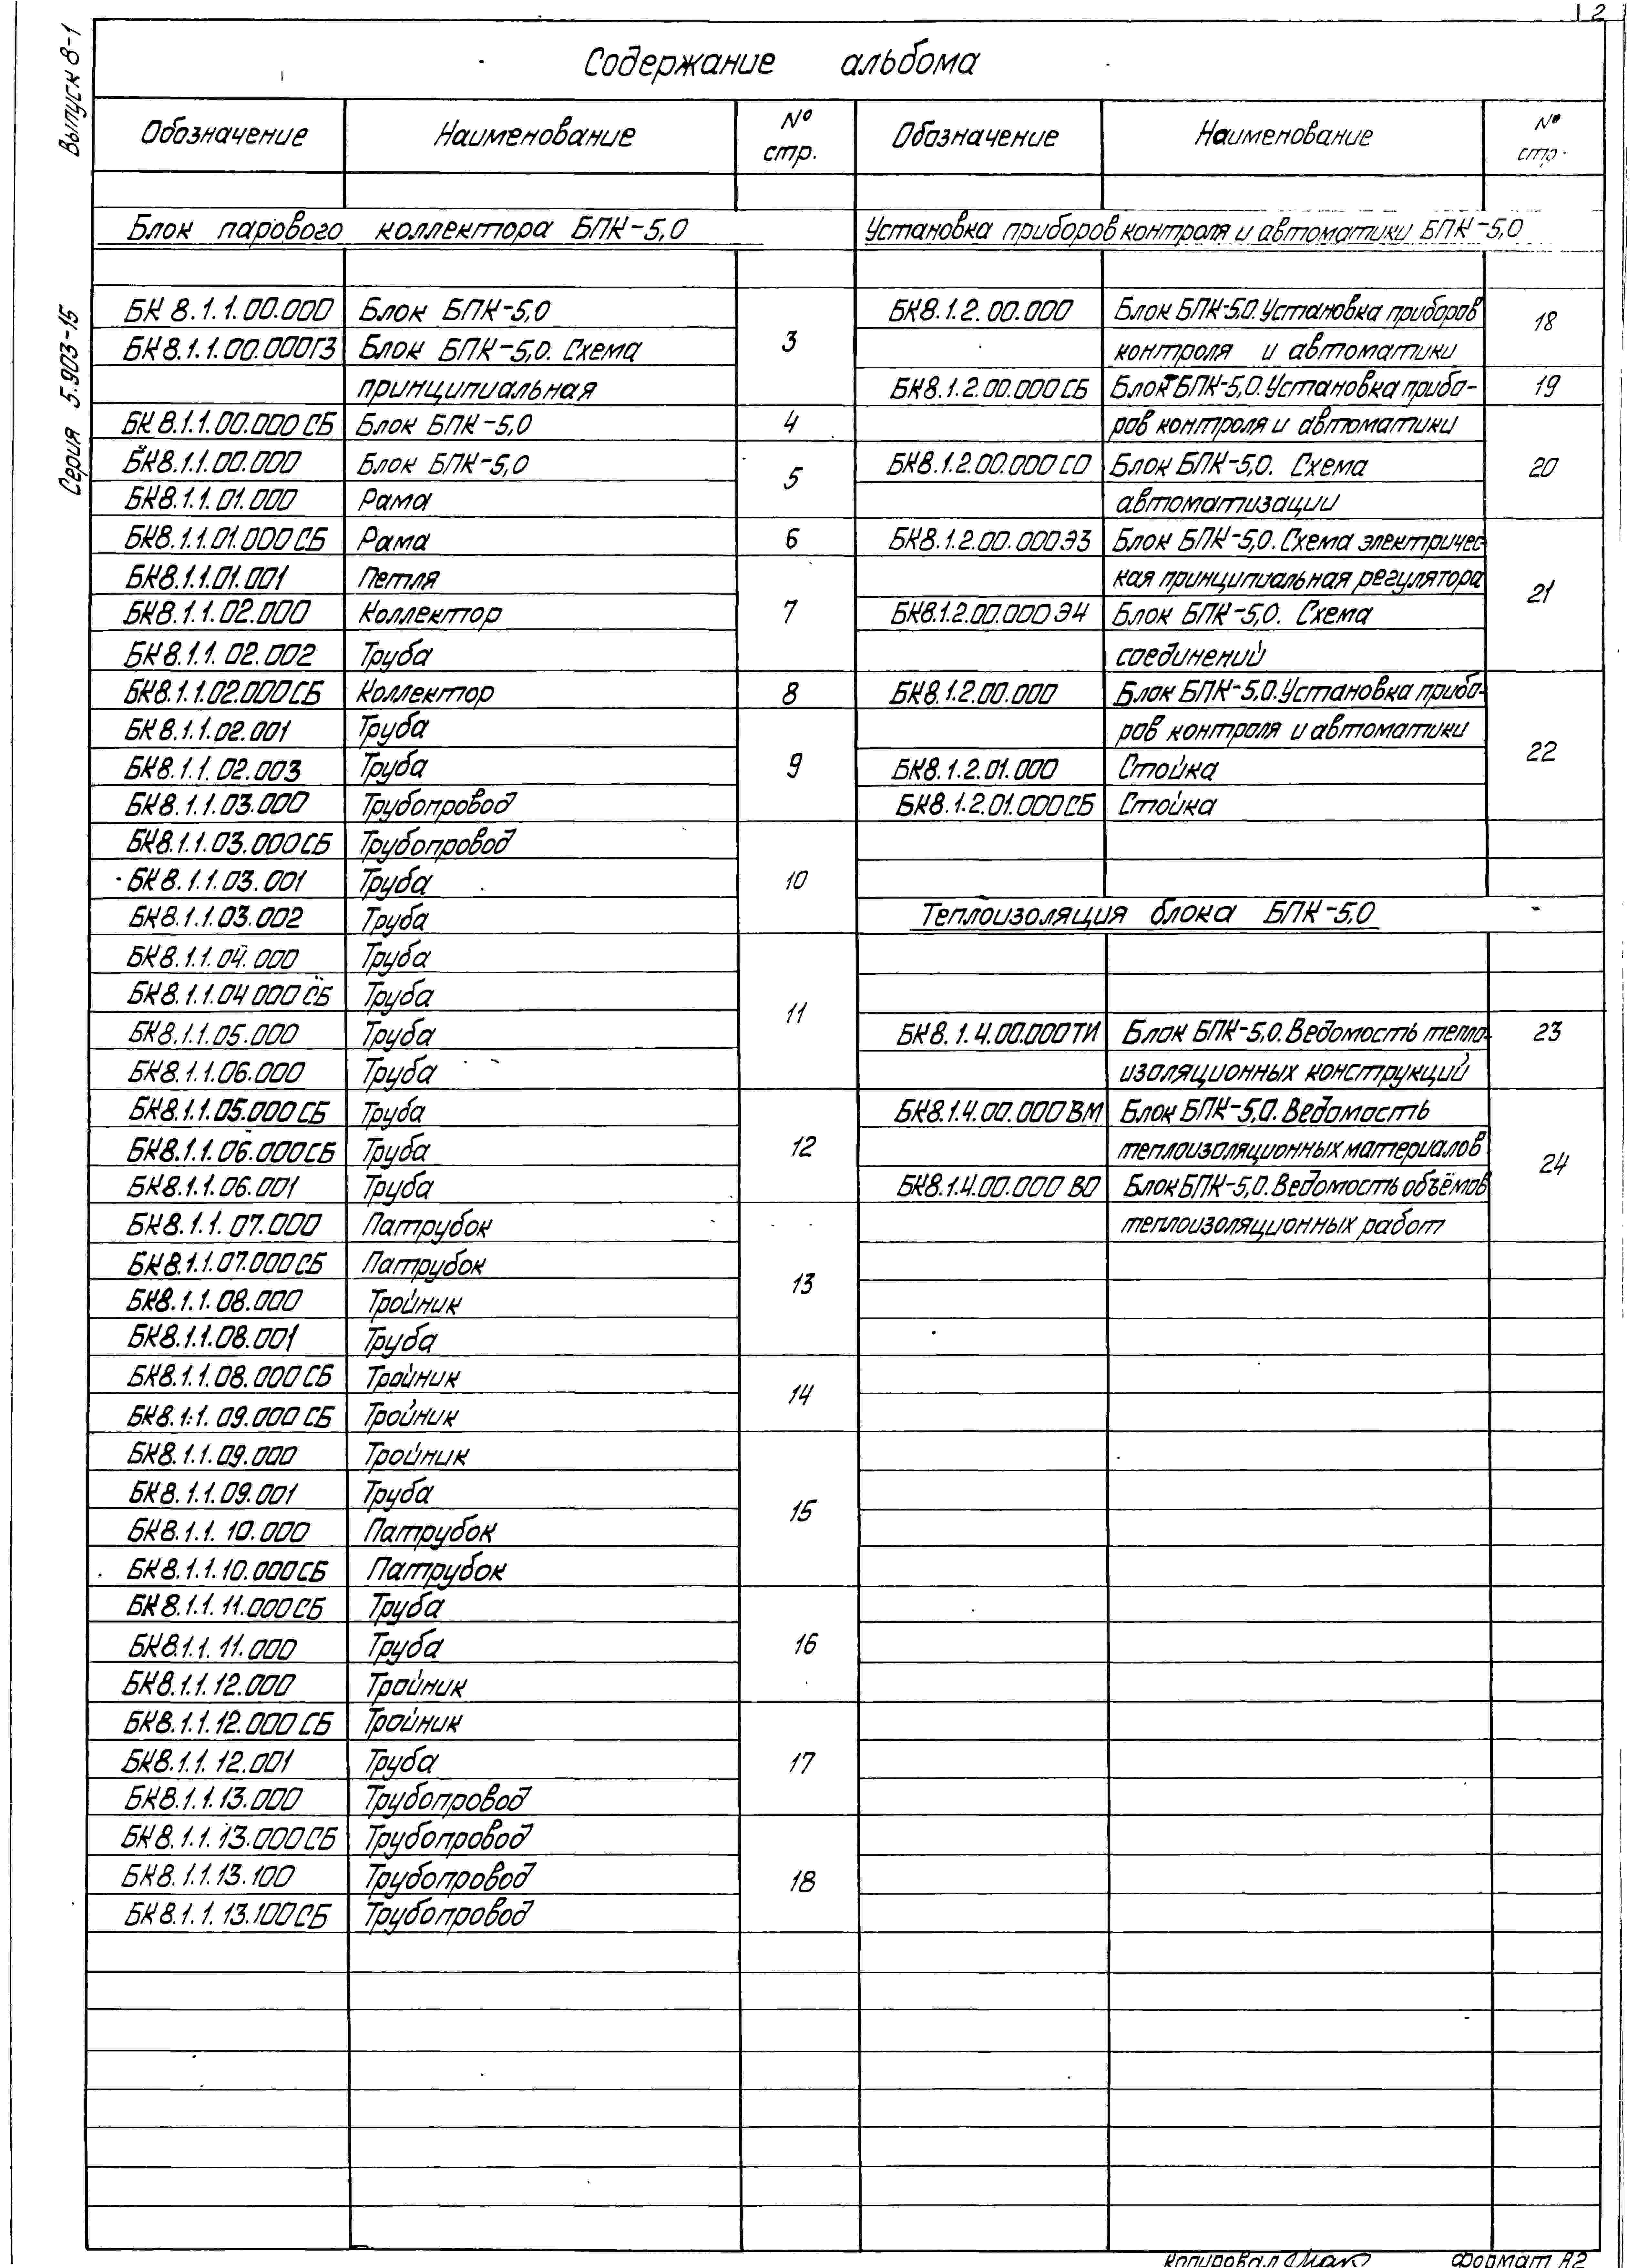 2
Выпуск 8-1
Серия 5.903-15
Содержание альбома
Обозначение Наименование № стр.
Блок парового коллектора БПК-5,0
БК 8.1.1.00.000 Блок БПК-5,0
БК8.1.1.00.000ГЗ Блок БПК-5,0. Схема 3
принципиальная
БК 8.1.1.00.000 СБ Блок БПК-5,0 4
БК8.1.1.00.000 Блок БПК-5,0 5
БК8.1.1.01.000 Рама
БК8.1.1.01.000 СБ Рама 6
БК8.1.1.01.001 Петля
БК8.1.1.02.000 Коллектор 7
БК8.1.1.02.002 Труба
БК8.1.1.02.000СБ Коллектор 8
БК 8.1.1.02.001 Труба
БК8.1.1.02.003 Труба 9
БК8.1.1.03.000 Трубопровод
БК8.1.1.03.000СБ Трубопровод
БК 8.1.1.03.001 Труба 10
БК8.1.1.03.002 Труба
БК8.1.1.04.000 Труба
БК8.1.1.04 000 СБ Труба 11
БК8.1.1.05.000 Труба
БК8.1.1.06.000 Труба
БК8.1.1.05.000 СБ Труба
БК8.1.1.06.000СБ Труба 12
БК8.1.1.06.001 Труба
БК8.1.1.07.000 Патрубок
БК8.1.1.07.000СБ Патрубок 13
БК8.1.1.08.000 Тройник
БК8.1.1.08.001 Труба
БК8.1.1.08.000СБ Тройник 14
БК8.1.1.09.000 СБ Тройник
БК8.1.1.09.000 Тройник
БК8.1.1.09.001 Труба 15
БК8.1.1.10.000 Патрубок
БК8.1.1.10.000СБ Патрубок
БК 8.1.1.11.000СБ Труба
БК8.1.1.11.000 Труба 16
БК8.1.1.12.000 Тройник
БК8.1.1.12.000 СБ Тройник
БК8.1.1.12.001 Труба 17
БК8.1.1.13.000 Трубопровод
БК8.1.1.13.000СБ Трубопровод
БК8.1.1.13.100 Трубопровод 18
БК8.1.1.13.100СБ Трубопровод
Обозначение Наименование № стр.
Установка приборов контроля и автоматики БПК-5,0
БК8.1.2.00.000 Блок БПК-5.0.Установка приборов 18
контроля и автоматики
БК8.1.2.00.000СБ Блок БПК-5,0.Установка прибо- 19
ров контроля и автоматики
БК8.1.2.00.000 СО Блок БПК-5,0. Схема 20
автоматизации
БК8.1.2.00.000ЭЗ Блок БПК-5,0.Схема электричес-
кая принципиальная регулятора 21
БК8.1.2.00.000 Э4 Блок БПК-5,0. Схема
соединений
БК8.1.2.00.000 Блок БПК-5,0.Установка прибо-
ров контроля и автоматики 22
БК8.1.2.01.000 Стойка
БК8.1.2.01.000СБ Стойка
Теплоизоляция блока БПК-5,0
БК8.1.4.00.000ТИ Блок БПК-5,0.Ведомость тепло- 23
изоляционных конструкций
БК8.1.4.00.000 ВМ Блок БПК-5,0.Ведомость
теплоизоляционных материалов 24
БК8.1.4.00.000 ВО Блок БПК-5,0.Ведомость объёмов
теплоизоляционных работ
Копировал Формат А2